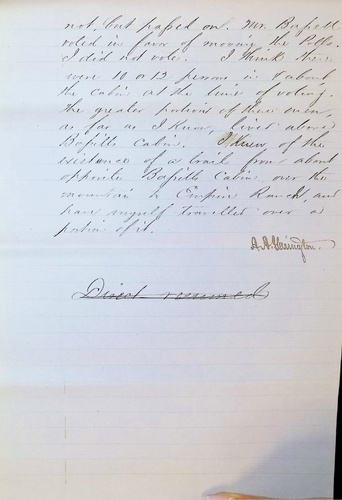 not, but passed on. Mr. Bufsett
voted in favor of moving the Polls.
I did not vote. I think there
were 10 or 12 persons in & about
the cabin at the time of voting.
The greater portion of these men,
as far as I know, lived above
cabin. I knew of the
existence of a trail from about
opposite cabin over the
mountain to Empire Ranch, and
have myself travelled over a
portion of it.
A. A.
Direct resumed